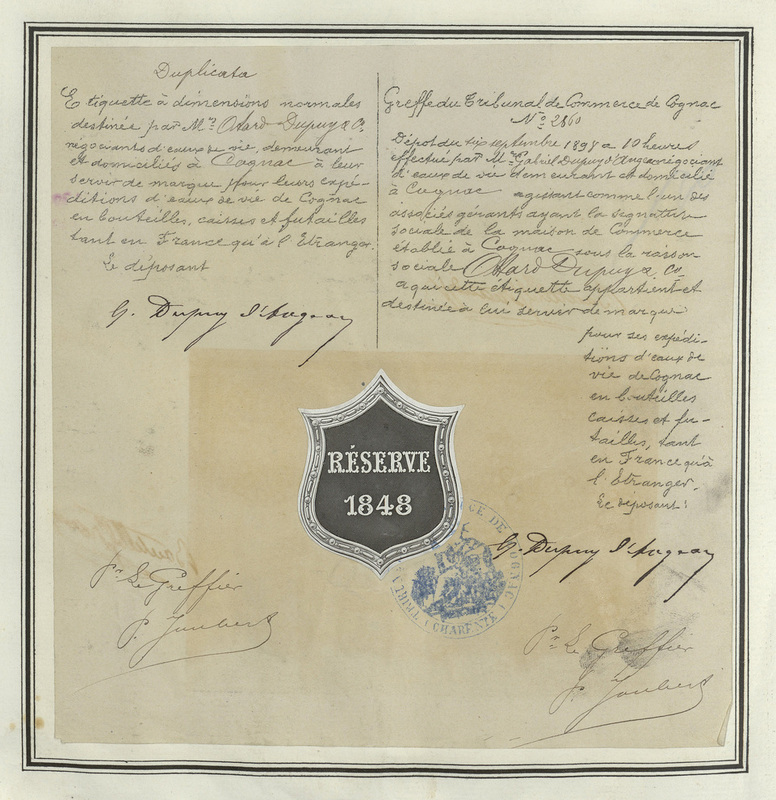 Duplicata
Etiquette à dimensions normales
destinée par Mrs Otard Dupuy & Co
négociants d'eaux de vie, demeurant
et domiciliés à Cognac à leur
servir de marque pour leurs expé-
ditions d'eaux de vie de Cognac
en bouteilles, caisses et futailles
tant en France qu'à l'Etranger.
Le déposant
G. Dupuy d'Angeac
Greffe du Tribunal de Commerce de Cognac
No 2860
Dépôt du six septembre 1898 à 10 heures
effectué par Mr Gabriel Dupuy d'Angeac négociant
d'eaux de vie demeurant et domicilié
à Cognac agissant comme l'un des
associés gérants ayant la signature
sociale de la maison de Commerce
établie à Cognac sous la raison
sociale Otard Dupuy & Co
à qui cette étiquette appartient et
destinée à lui servir de marque
pour ses expédi-
tions d'eaux de
vie de Cognac
en bouteilles
caisses et fu-
tailles, tant
en France qu'à
l'Etranger.
Le déposant:
G. Dupuy d'Angeac
RÉSERVE
1848
TRIBUNAL DE COMMERCE DE COGNAC
(CHARENTE)
Pr Le Greffier
P. Joubert
Pr Le Greffier
P. Joubert